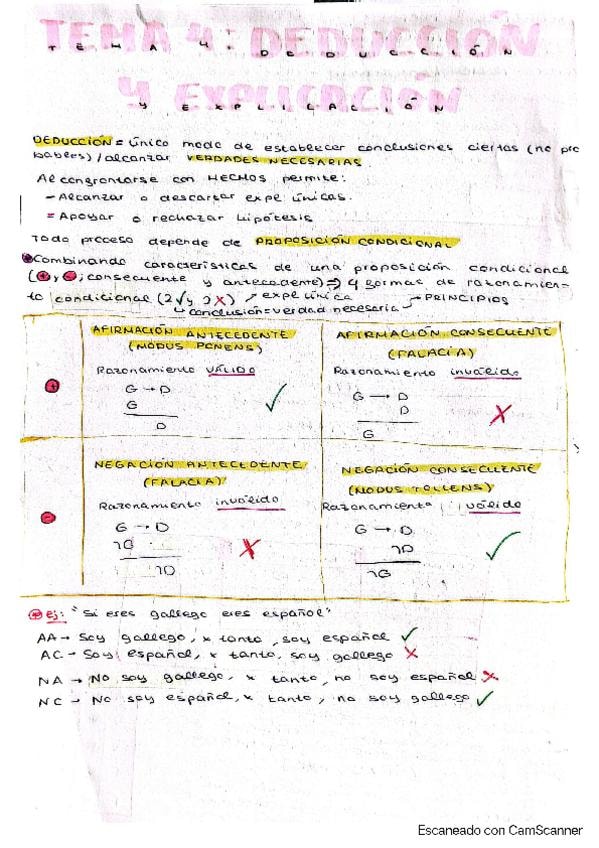 TEMA 4: DEDUCCIÓN
Y EXPLICACIÓN
DEDUCCIÓN = único modo de establecer conclusiones ciertas (no pro
babeles) / alcanzar VERDADES NECESARIAS
Al confrontarse con HECHOS permite:
- Alcanzar o descartar expl únicas.
= Apoyar o rechazar hipótesis
Todo proceso depende de PROPOSICIÓN CONDICIONAL
Combinando características de una proposición condicional
(+ y -; consecuente y antecedente) ⇒ 4 formas de razonamien-
to condicional (2 ✓ y 2 X) ↗ expl única → PRINCIPIOS
↳ conclusión = verdad necesaria
AFIRMACIÓN ANTECEDENTE
(MODUS PONENS)
Razonamiento VÁLIDO
G → D
G
D
✓
AFIRMACIÓN CONSECUENTE
(FALACIA)
Razonamiento inválido
G → D
D
G
X
+
NEGACIÓN ANTECEDENTE
(FALACIA)
Razonamiento inválido
G → D
¬G
¬D
X
NEGACIÓN CONSECUENTE
(MODUS TOLLENS)
Razonamiento válido
G → D
¬D
¬G
✓
-
ej: "Si eres gallego eres español"
AA → Soy gallego, x tanto, soy español ✓
AC → Soy español, x tanto, soy gallego X
NA → No soy gallego, x tanto, no soy español X
NC → No soy español, x tanto, no soy gallego ✓
Escaneado con CamScanner